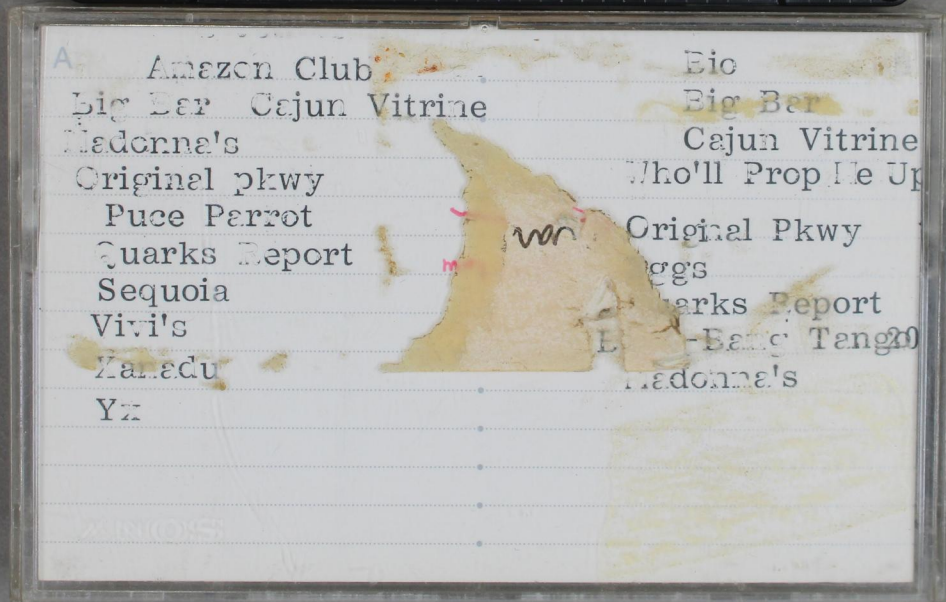 A
Amazon Club
Big Bar Cajun Vitrine
Madonna's
Original pkwy
Puce Parrot
Quarks Report
Sequoia
Vivi's
Xanadu
Bio
Big Bar
Cajun Vitrine
Who'll Prop Me Up
Original Pkwy
ggs
arks Report
-Bang Tango
Madonna's